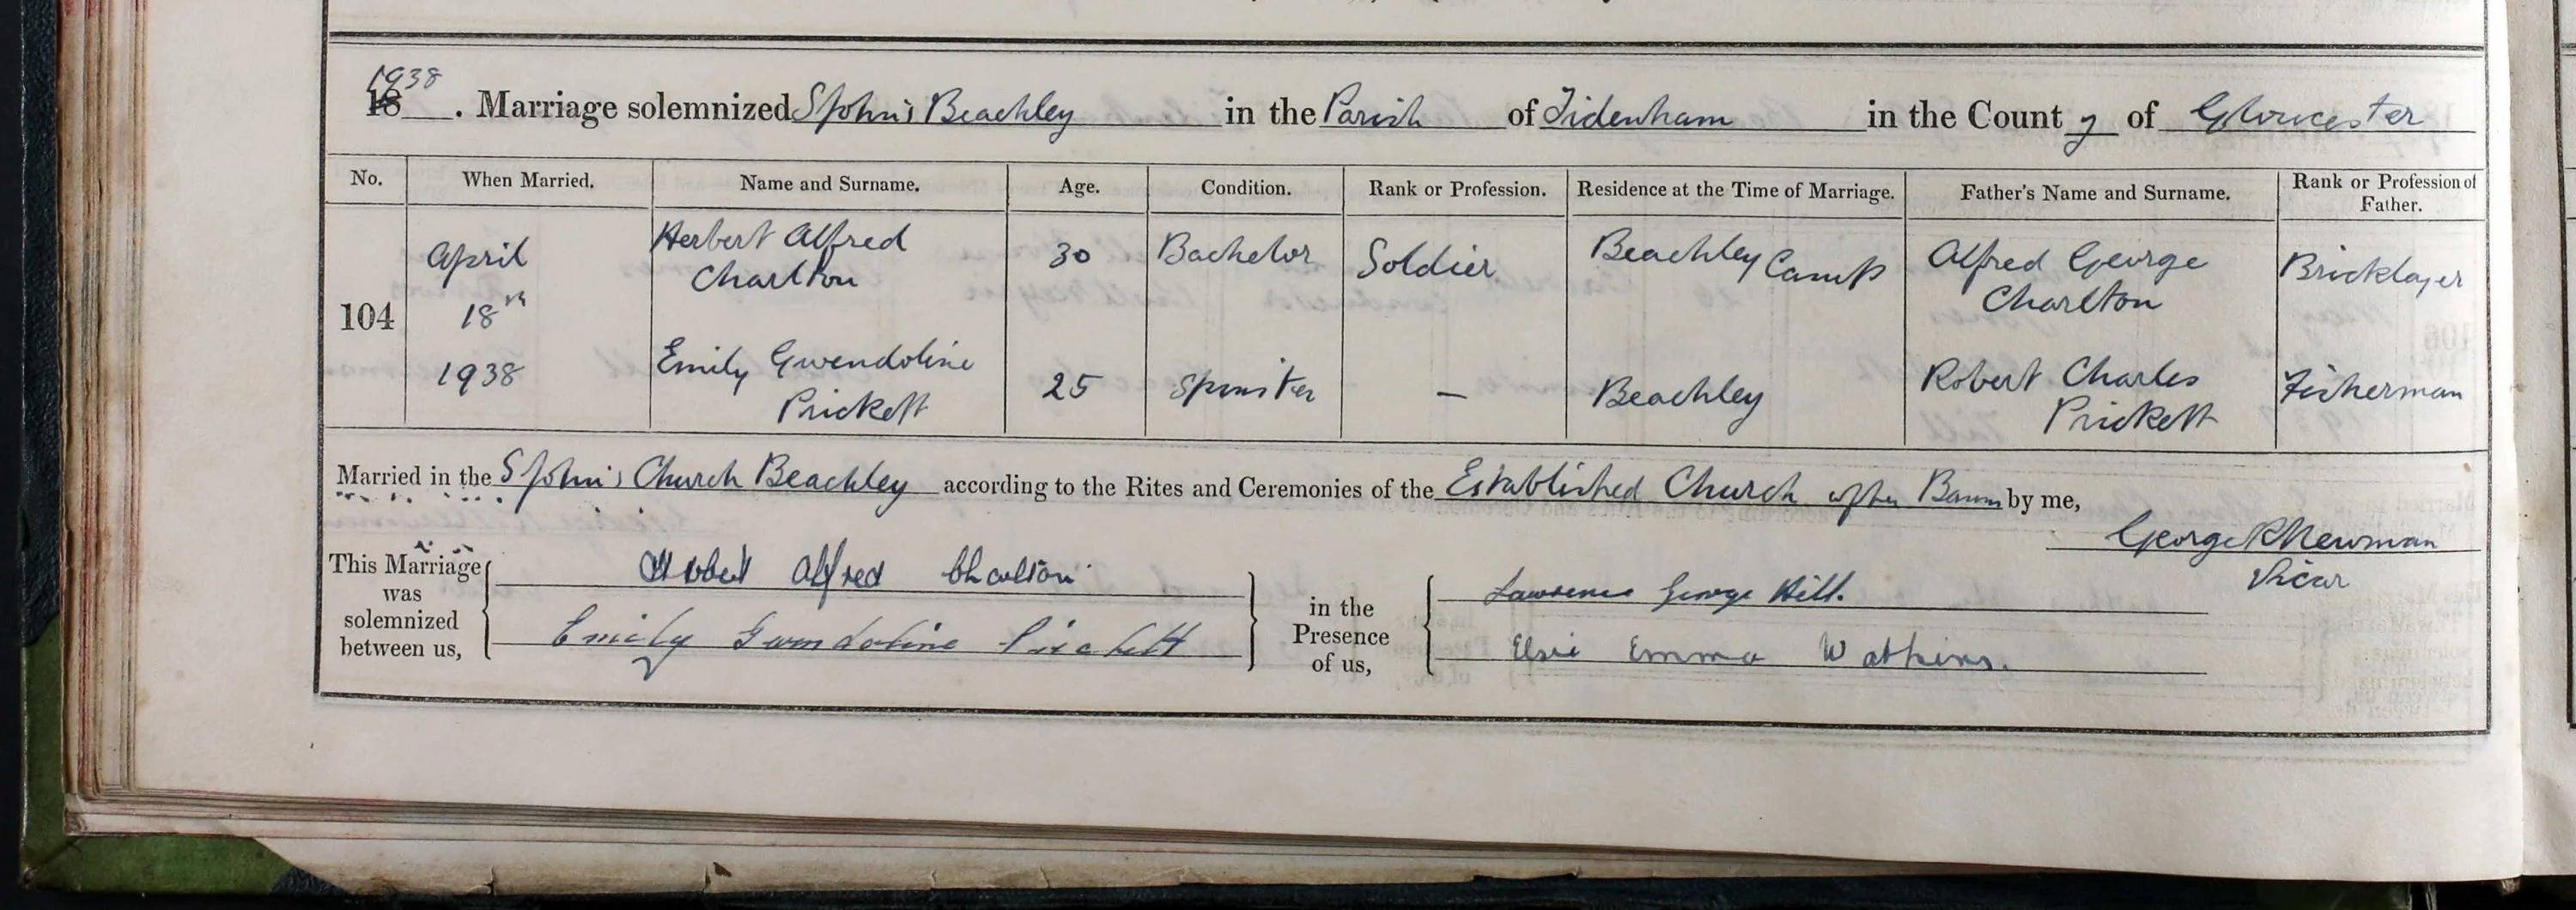 1938
18 . Marriage solemnized St John's Beachley in the Parish of Tidenham in the County of Gloucester
No. When Married. Name and Surname. Age. Condition. Rank or Profession. Residence at the Time of Marriage. Father's Name and Surname. Rank or Profession of Father.
104 April 18th 1938
Herbert Alfred Charlton 30 Bachelor Soldier Beachley Camp Alfred George Charlton Bricklayer
Emily Gwendoline Prickett 25 Spinster — Beachley Robert Charles Prickett Fisherman
Married in the St John's Church Beachley according to the Rites and Ceremonies of the Established Church after Banns by me,
George R Newman
Vicar
This Marriage was solemnized between us,
Herbert Alfred Charlton
Emily Gwendoline Prickett
in the Presence of us,
Lawrence George Hill.
Elsie Emma Watkins.